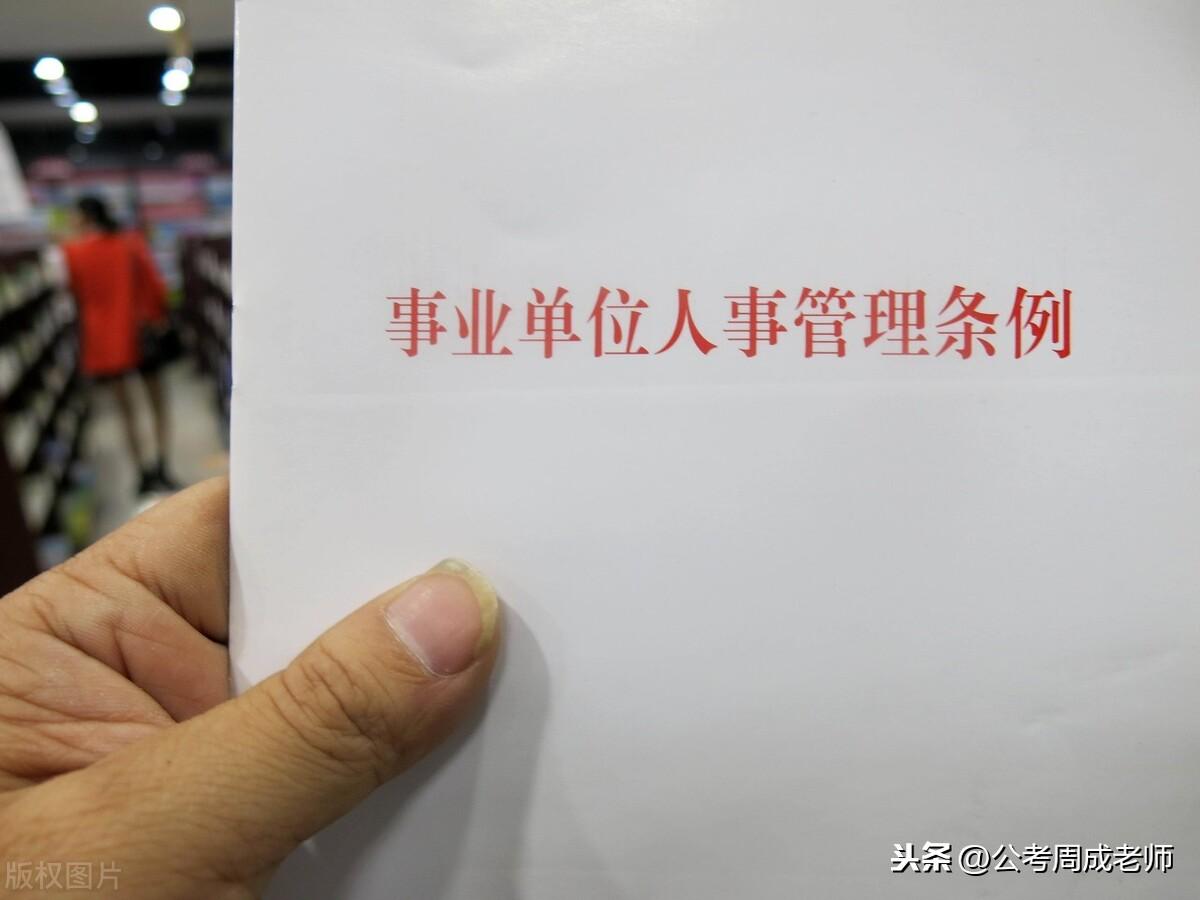 事业单位人事管理条例
头条 @公考周成老师
版权图片